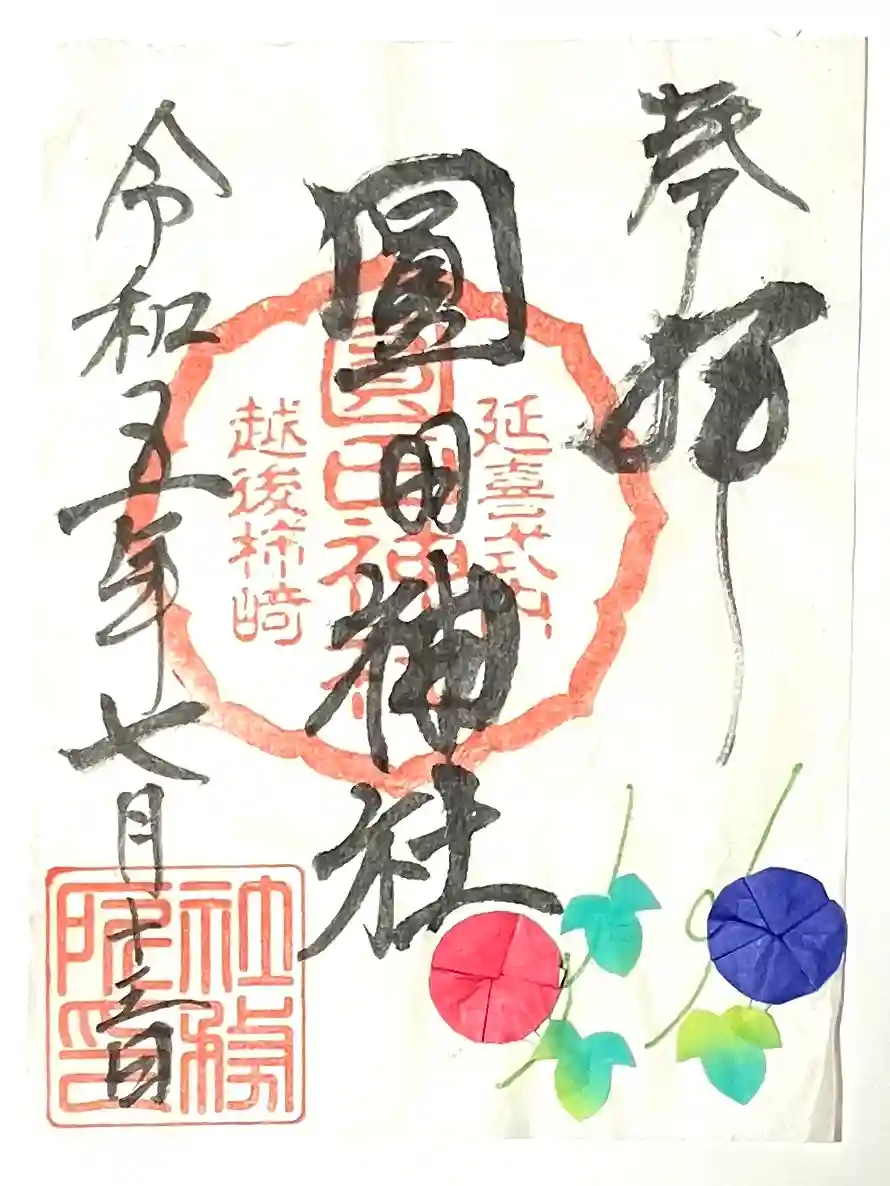 奉拝
延喜式内
圓田神社
圓田神社
越後柿崎
令和五年七月十三日
社務
所印